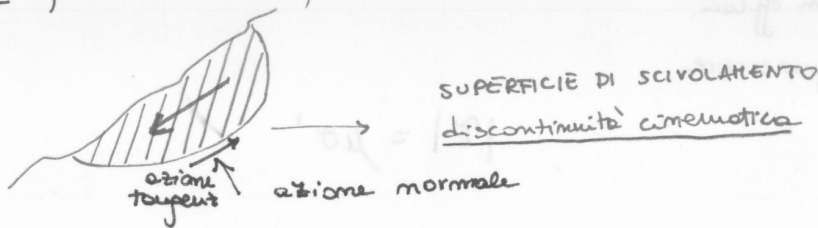 SUPERFICIE DI SCIVOLAMENTO
discontinuità cinematica
azione
tangent
azione normale